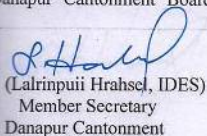 Danapur Cantonment Board
(Lalrinpuii Hrahsel, IDES)
Member Secretary
Danapur Cantonment